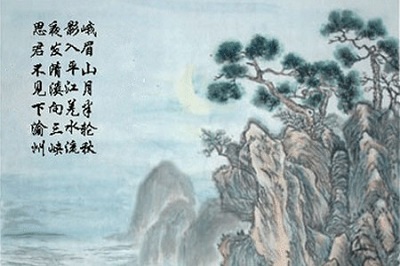 峨眉山月半轮秋
影入平江羌水流
夜发清溪向三峡
思君不见下渝州